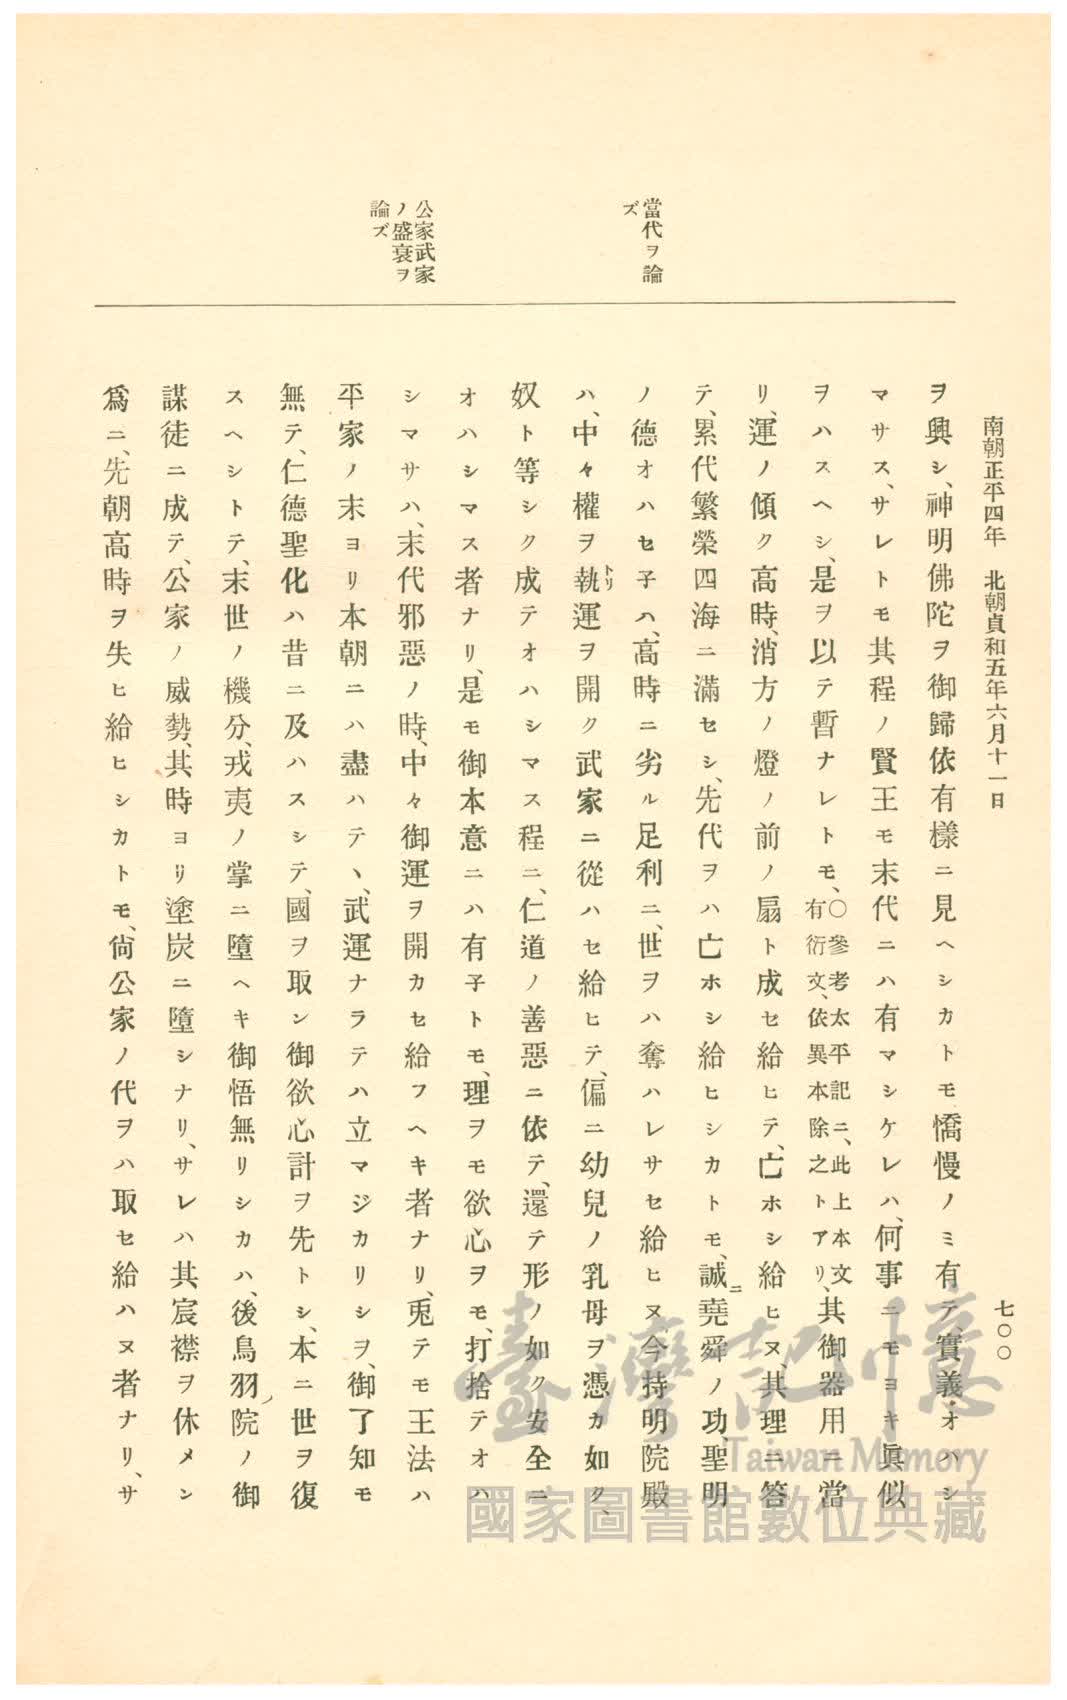 南朝正平四年　北朝貞和五年六月十一日
七〇〇
當代ヲ論
ズ
公家武家
ノ盛衰ヲ
論ズ
ヲ興シ、神明佛陀ヲ御歸依有樣ニ見ヘシカトモ憍慢ノミ有テ、實義オハシ
マサス、サレトモ其程ノ賢王モ末代ニハ有マシケレハ、何事ニモヨキ眞似
ヲハスヘシ、是ヲ以テ暫ナレトモ、〇參考太平記ニ、此上本文有衍文、依異本除之トアリ、其御器用ニ當
リ、運ノ傾ク高時、消方ノ燈ノ前ノ扇ト成セ給ヒテ、亡ホシ給ヒヌ、其理ニ答
テ、累代繁榮四海ニ滿セシ、先代ヲハ亡ホシ給ヒシカトモ、誠ニ堯舜ノ功、聖明
ノ德オハセ子ハ、高時ニ劣ル足利ニ、世ヲハ奪ハレサセ給ヒヌ、今持明院殿
ハ、中々權ヲ執トリ運ヲ開ク武家ニ從ハセ給ヒテ、偏ニ幼兒ノ乳母ヲ憑カ如ク、
奴ト等シク成テオハシマス程ニ、仁道ノ善惡ニ依テ、還テ形ノ如ク安全ニ
オハシマス者ナリ、是モ御本意ニハ有子トモ、理ヲモ欲心ヲモ、打捨テオハ
シマサハ、末代邪惡ノ時、中々御運ヲ開カセ給フヘキ者ナリ、兎テモ王法ハ
平家ノ末ヨリ本朝ニハ盡ハテヽ、武運ナラテハ立マジカリシヲ、御了知モ
無テ、仁德聖化ハ昔ニ及ハスシテ、國ヲ取ン御欲心計ヲ先トシ、本ニ世ヲ復
スヘシトテ、末世ノ機分、戎夷ノ掌ニ墮ヘキ御悟無リシカハ、後鳥羽ノ院ノ御
謀徒ニ成テ、公家ノ威勢、其時ヨリ塗炭ニ墮シナリ、サレハ其宸襟ヲ休メン
爲ニ、先朝高時ヲ失ヒ給ヒシカトモ、尙公家ノ代ヲハ取セ給ハヌ者ナリ、サ
臺灣記憶
Taiwan Memory
國家圖書館數位典藏